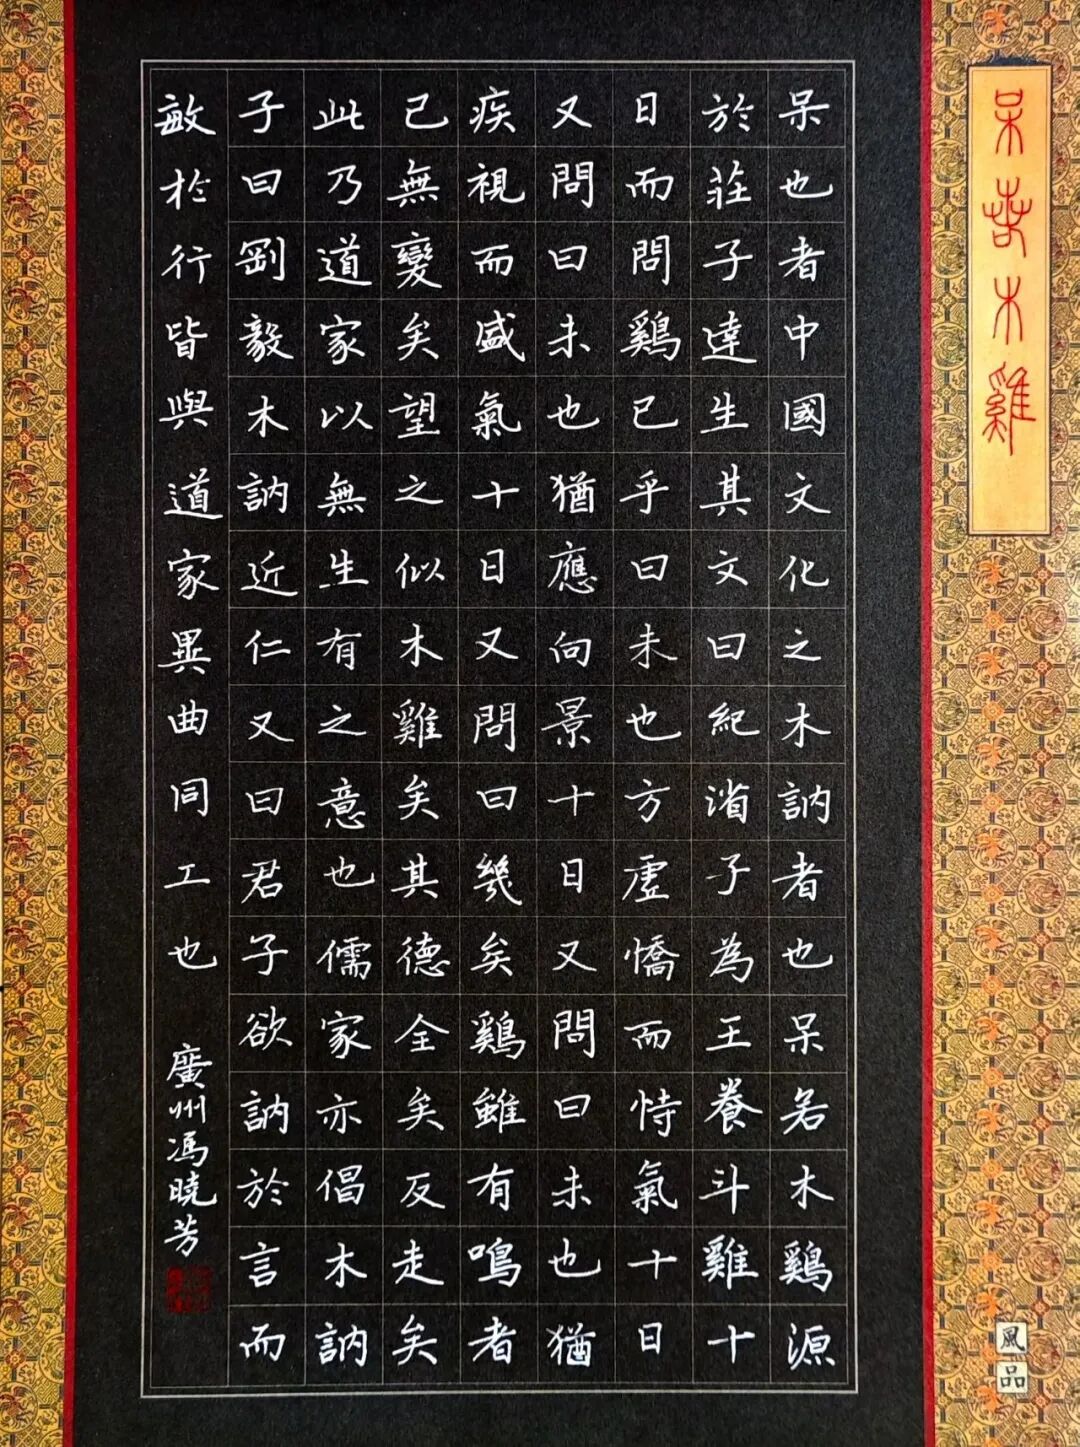 呆若木雞
呆也者中國文化之木訥者也呆若木鷄源
於莊子達生其文曰紀渻子為王養斗雞十
日而問鷄已乎曰未也方虛憍而恃氣十日
又問曰未也猶應向景十日又問曰未也猶
疾視而盛氣十日又問曰幾矣鷄雖有鳴者
已無變矣望之似木雞矣其德全矣反走矣
此乃道家以無生有之意也儒家亦倡木訥
子曰剛毅木訥近仁又曰君子欲訥於言而
敏扵行皆與道家異曲同工也
廣州馮曉芳
風品